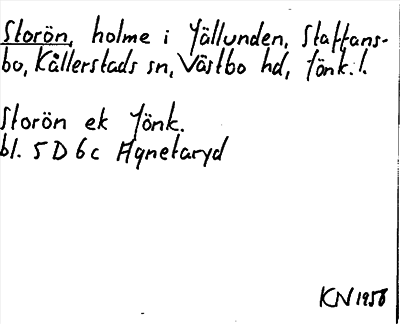 Storön, holme i Jällunden, Staffans-
bo, Kållerstads sn, Västbo hd, Jönk. l.
Storön ek Jönk.
bl. 5 D 6 c Agnetaryd
KN 1958